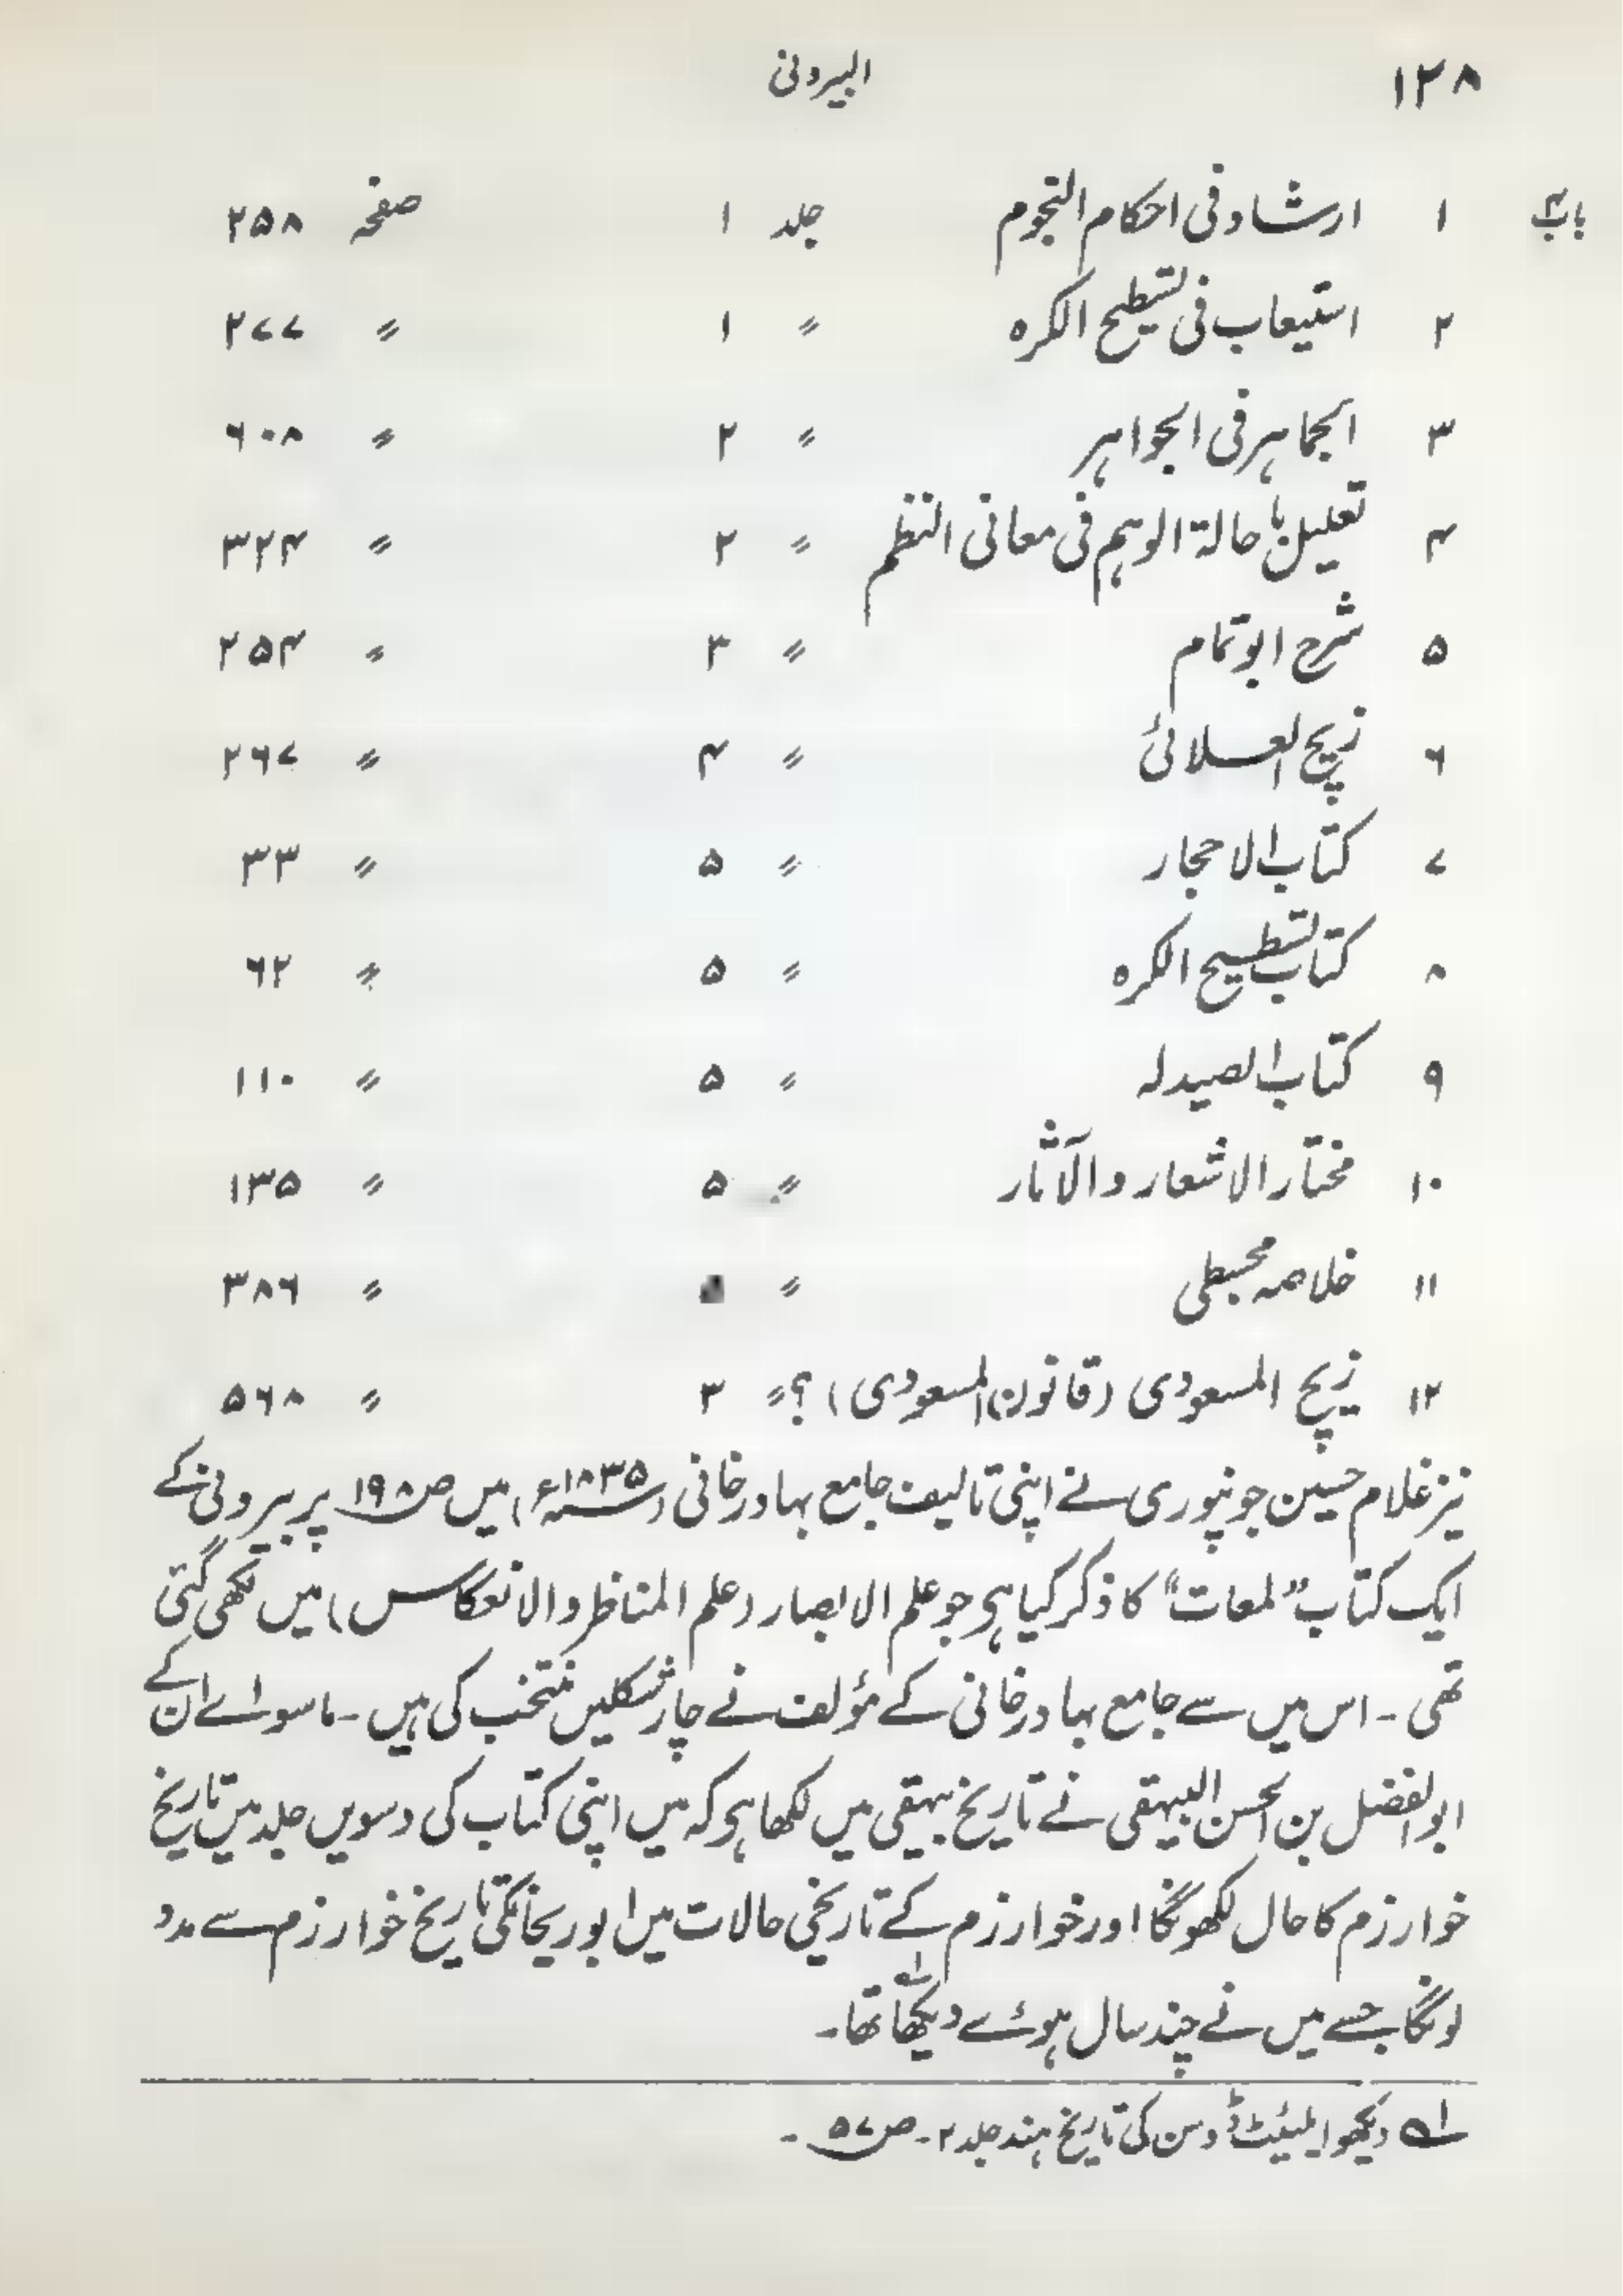 ۱۲۸ البیرونی
باب۴ ۱ ارشاد فی احکام النجوم جلد ۱ صفحہ ۲۵۸
۲ استیعاب فی تسطیح الکرہ 〃 ۱ 〃 ۲۷۷
۳ الجماہر فی الجواہر 〃 ۲ 〃 ۶۰۸
۴ تعلیل باحالۃ الوہم فی معانی النظم 〃 ۲ 〃 ۳۲۴
۵ شرح ابو تمام 〃 ۳ 〃 ۲۵۴
۶ زیج العلائی 〃 ۴ 〃 ۲۶۷
۷ کتاب الاحجار 〃 ۵ 〃 ۳۳
۸ کتاب تسطیح الکرہ 〃 ۵ 〃 ۶۲
۹ کتاب الصیدلہ 〃 ۵ 〃 ۱۱۰
۱۰ مختار الاشعار و الآثار 〃 ۵ 〃 ۱۳۵
۱۱ خلاصہ مجسطی 〃 〃 ۳۸۶
۱۲ زیج المسعودی (قانون المسعودی) ؟ 〃 ۳ 〃 ۵۶۸
نیز غلام حسین جونپوری نے اپنی تالیف جامع بہادر خانی (۱۸۳۵ء) میں ص ۱۹۸ پر بیرونی کے
ایک کتاب ”لمعات“ کا ذکر کیا ہے جو علم الابصار (علم المناظر و الانعکاس) میں لکھی گئی
تھی ۔ اس میں سے جامع بہادر خانی کے مؤلف نے چار شکلیں منتخب کی ہیں ۔ ماسوائے ان کے
ابوالفضل بن الحسن البیہقی نے تاریخ بیہقی میں لکھا ہے کہ میں اپنی کتاب کی دسویں جلد میں تاریخ
خوارزم کا حال لکھونگا اور خوارزم کے تاریخی حالات میں ابوریحانکی تاریخ خوارزم سے مدد
لونگا جسے میں نے چند سال ہوئے دیکھا ۱؎ تھا ۔
۱؎ دیکھو ایلیئٹ ڈوسن کی تاریخ ہند جلد ۲ ۔ ص ۵۷ ۔